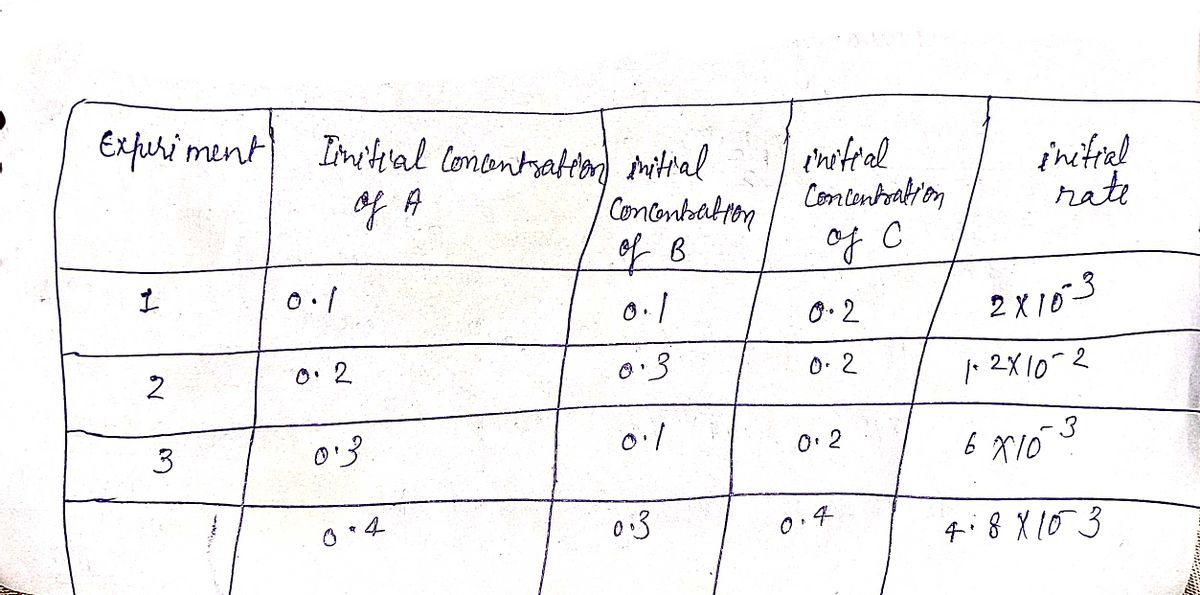 Experiment Iinitial Concentration of A initial Concentration of B initial Concentration of C initial rate
1 0.1 0.1 0.2 2 X 10-3
2 0.2 0.3 0.2 1.2X10-2
3 0.3 0.1 0.2 6 X10-3
0.4 0.3 0.4 4.8 X 10-3